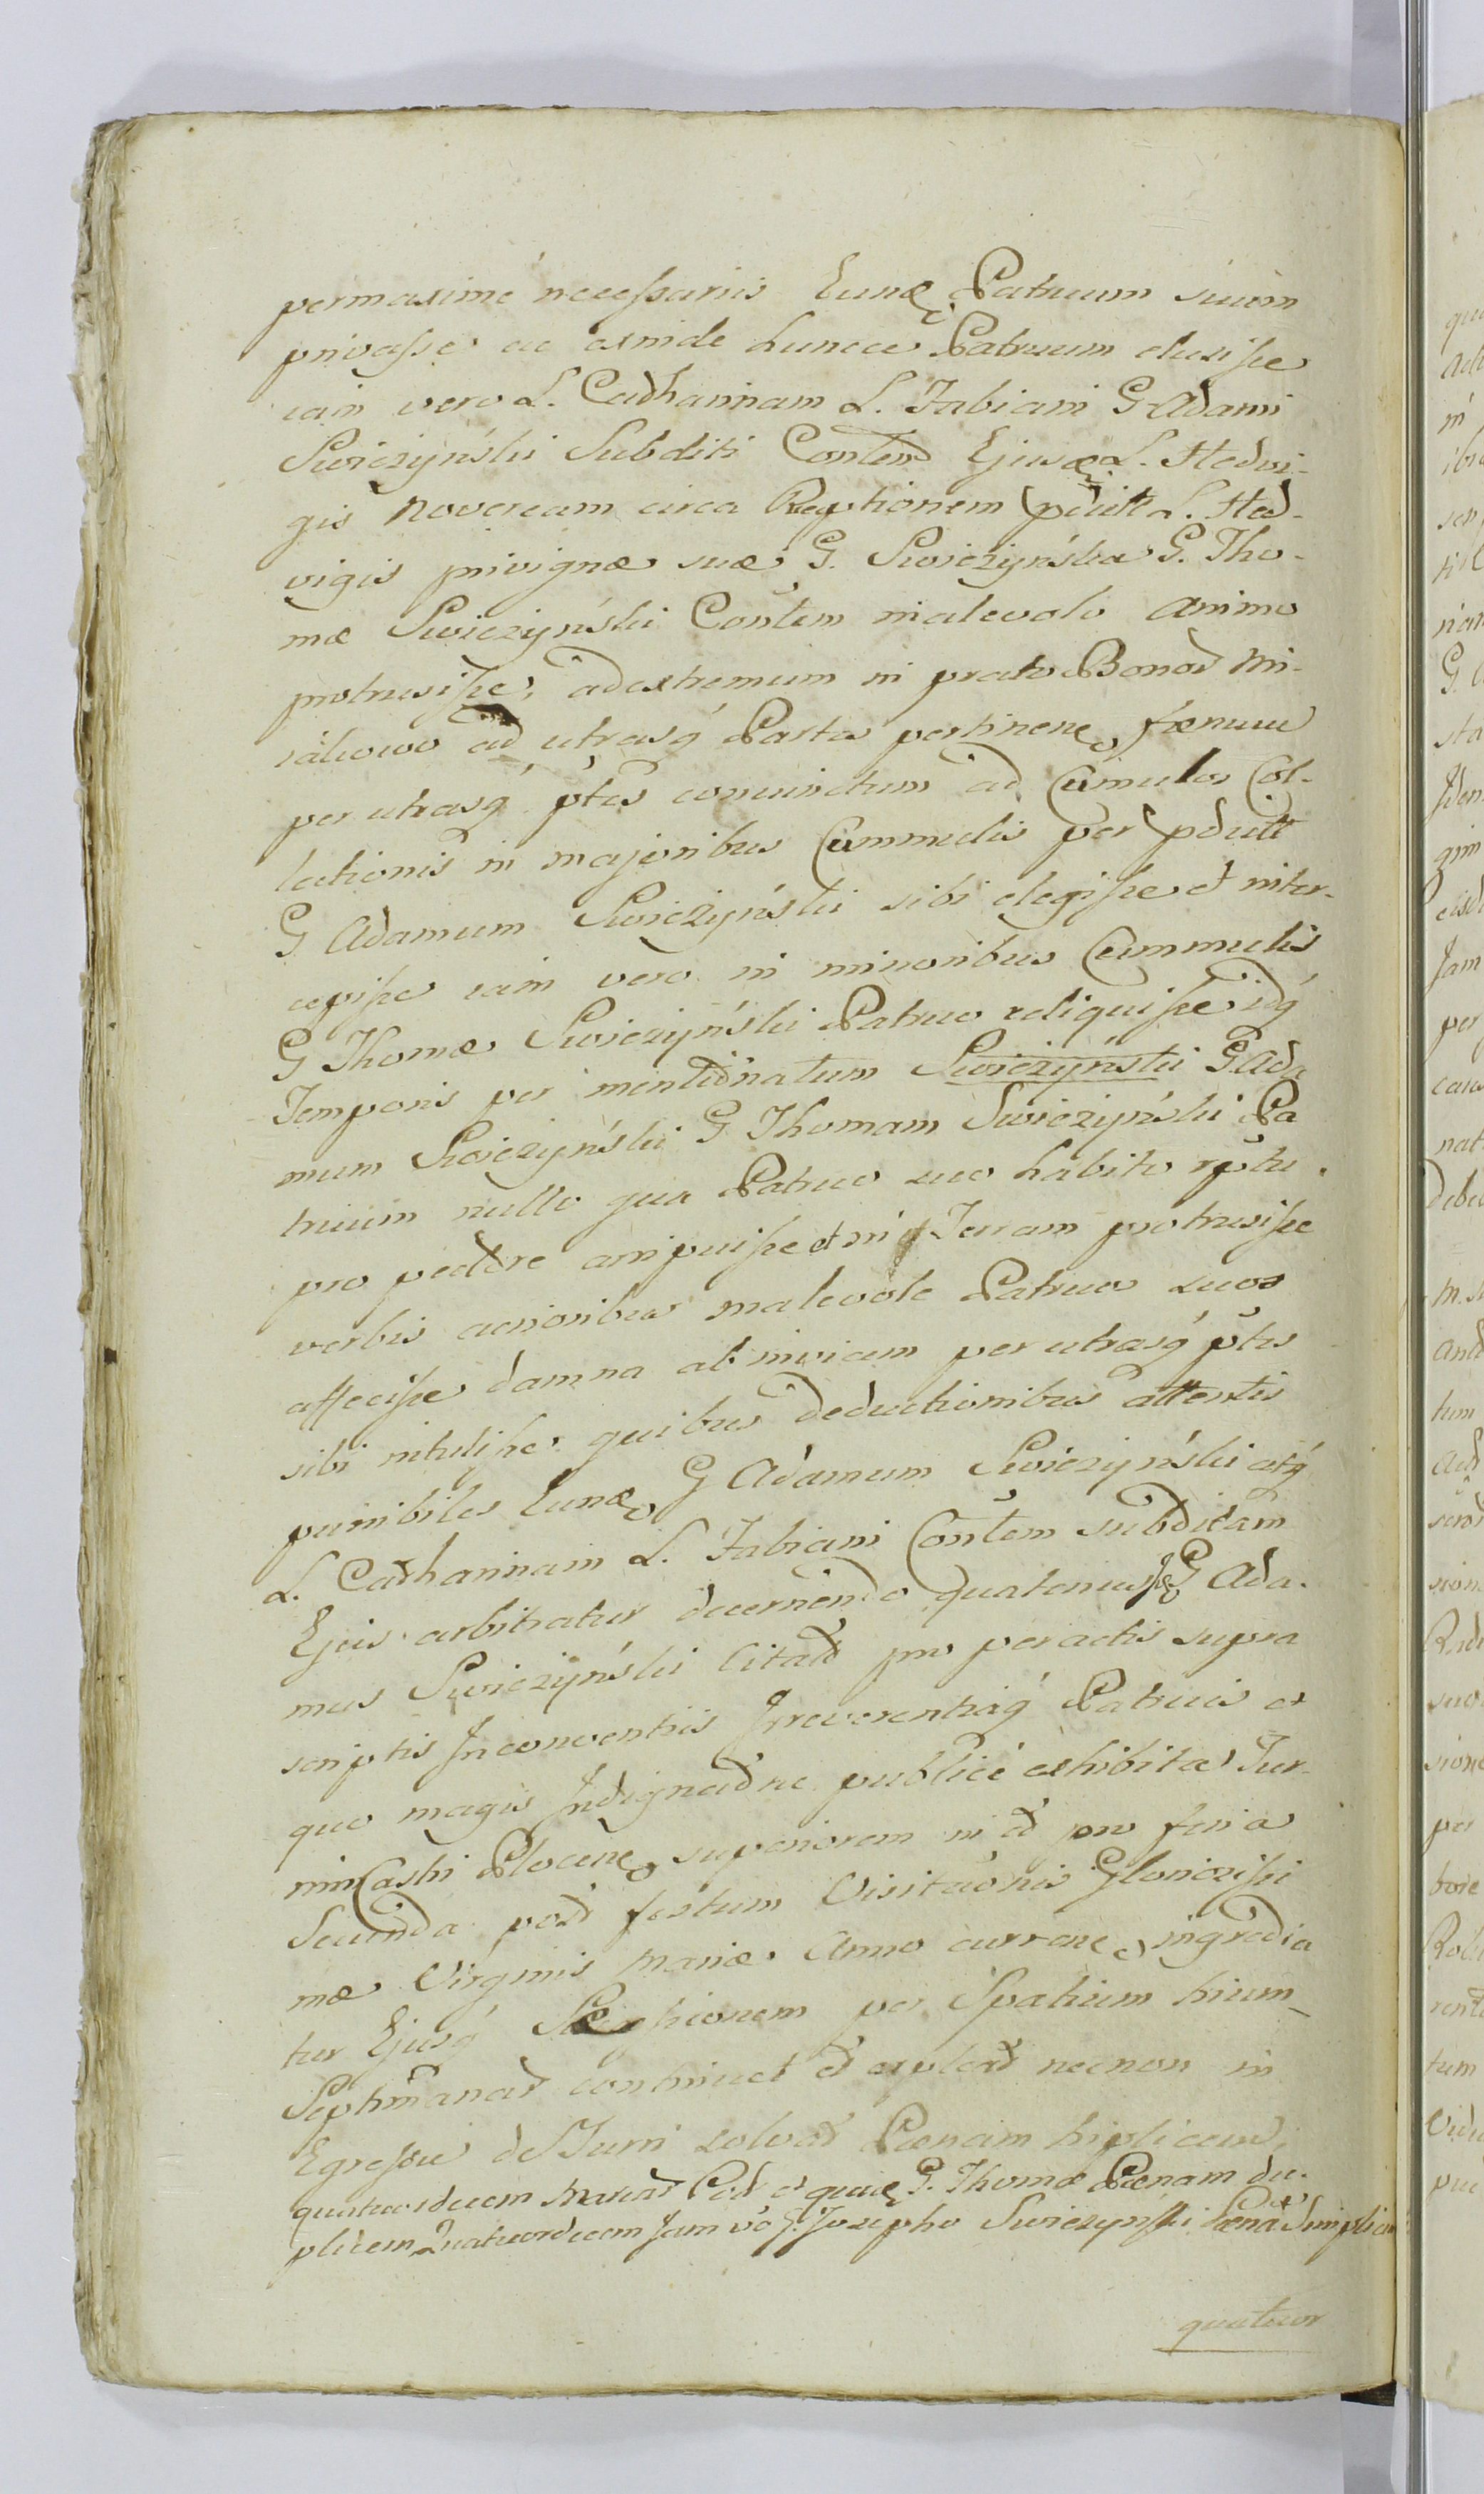 permaximé necessariis Eundę Patruum suum
privasse ac exinde huncce Patruum elusisse
iam vero L. Catharinam L. Fabiani G Adami
Swiezyński Subditi Contem Ejusdę L. Hedvi-
gis Novercam circa Reptionem pdictt L. Hed-
vigis privignæ suæ G. Swiezyńska G. Tho-
mæ Swiezyński Contem malevolo animo
protrusisse, ad extremum in prato Bonor Mi-
całowo ad utrasq Partes pertinenę fænum
per utrasq ptes coniunctum ad Cumulos Col-
lationis in majoribus Cummulis per pdictt
G Adamum Swiezyński sibi elegisse et inter-
cepisse iam vero in minoribus Cummulis
G Thomæ Swiezyński Patruo reliquisse idq
Temporis per mentionatum Swiezyński G Ada
mum Swiezyński G Thomam Swiezyński Pa
truum nullo qua Patruo suo habito rptu
pro pectore arripuisse et in Terram protrusisse
verbis acrioribus malevole Patruos suos
affecisse damna ab invicem per utrasq ptes
sibi intulisse quibus deductionibus attentis
punibiles Eundę G Adamum Swiezyński atq
L. Catharinam L. Fabiani Contem subditam
Ejus arbitratur decernendo quatenus G Ada-
mus Swiezyński Citat pro peractis supra
scriptis Inconventiis Irreverentiaq Patruis et
quo magis Indignatne publicé exhibita Tur-
rim Castri Plocenę superiorem in et pro feria
Secunda post festum Visitaonis Gloriosissi
mæ Virginis Mariæ Anno currenę ingredia
tur Ejusq Sessionem per Spatium trium
Septimanar continuet et expleat necnon in
Egressu de Turri solvat Pænam triplicem
quatuordecem Marcar Pol et quidę G. Thomæ Pænam du-
plicem Quatuordecem Jam vo G. Josepho Swiezynski Pænã Simplicem
quatuor